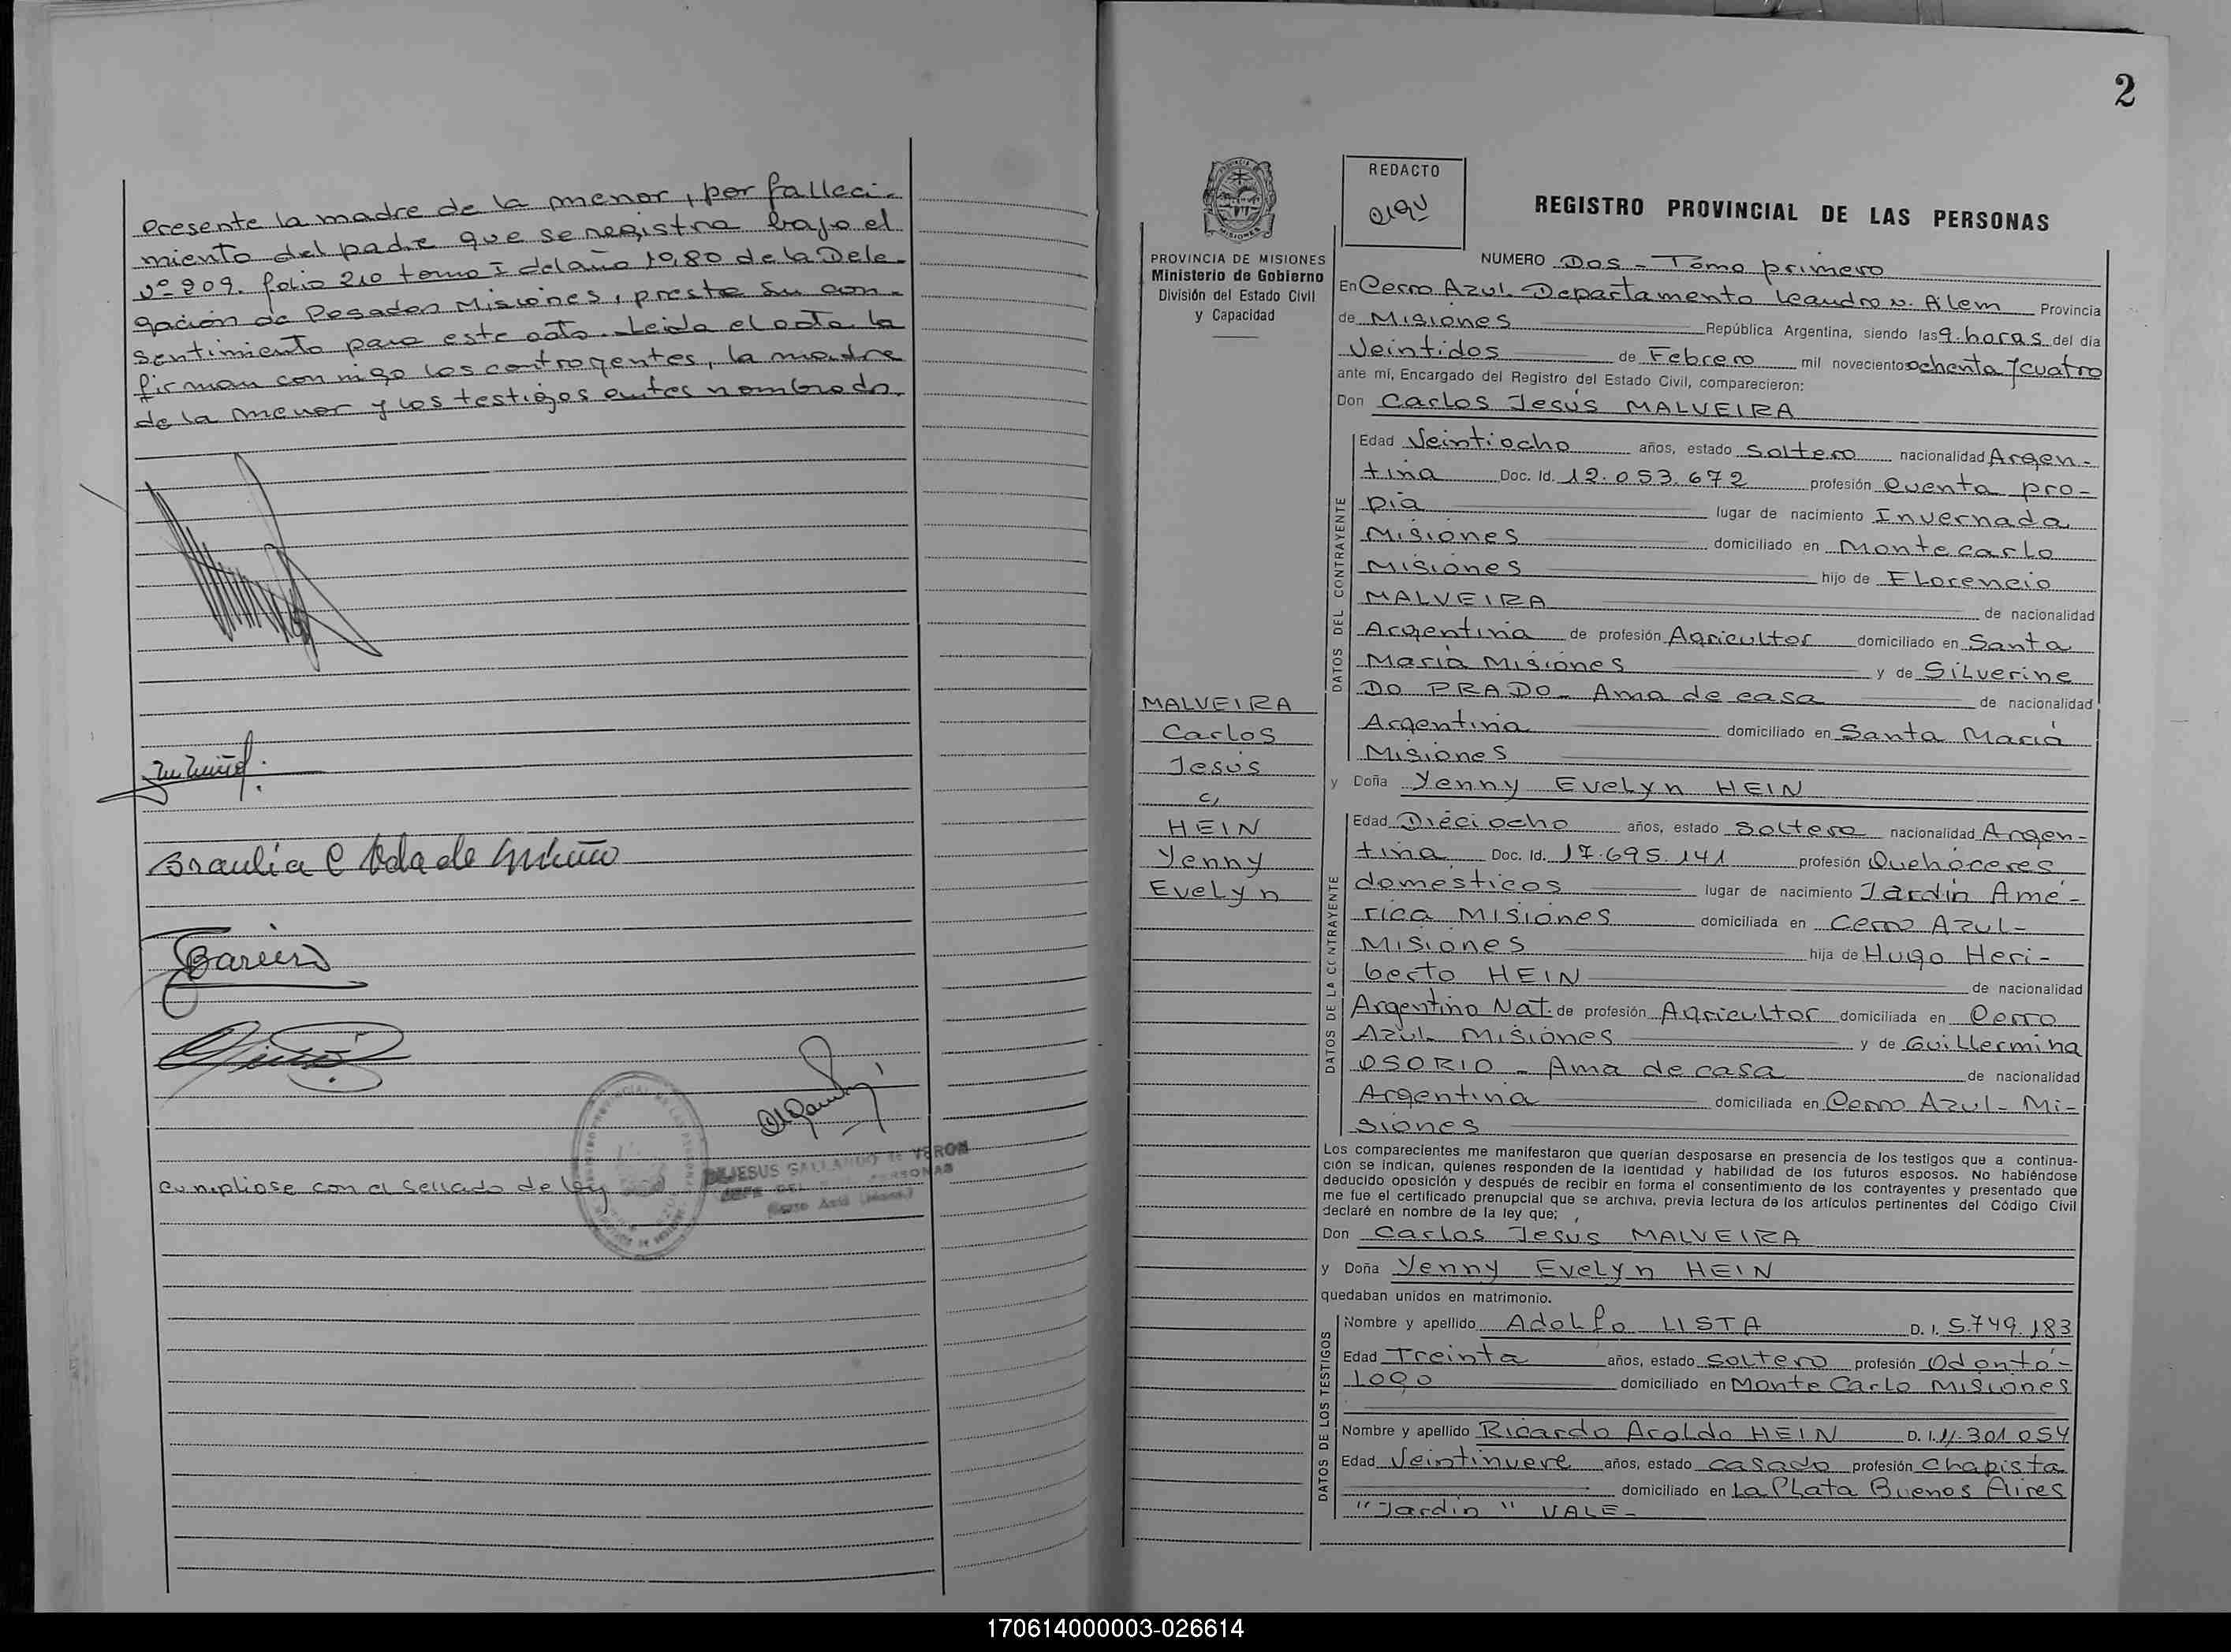 Presente la madre de la menor, por falleci-
miento del padre que se registra bajo el
Nº 209. folio 210 tomo I del año 1980 de la Dele-
gación de Posadas Misiones, presta su con-
sentimiento para este acto. Leida el acta la
firman con migo los contrayentes, la madre
de la menor y los testigos antes nombrado.
Braulia C Vda de
cumpliose con el sellado de ley
DE JESUS GALLARDO de VERON
2
PROVINCIA DE MISIONES
Ministerio de Gobierno
División del Estado Civil
y Capacidad
REDACTO
REGISTRO PROVINCIAL DE LAS PERSONAS
NUMERO Dos - Tomo primero
En Cerro Azul. Departamento Leandro N. Alem Provincia
de Misiones República Argentina, siendo las 9. horas del día
Veintidos de Febrero mil novecientos ochenta y cuatro
ante mí, Encargado del Registro del Estado Civil, comparecieron:
Don Carlos Jesús MALVEIRA
DATOS DEL CONTRAYENTE
Edad Veintiocho años, estado soltero nacionalidad Argen-
tina Doc. Id. 12.053.672 profesión Cuenta pro-
pia lugar de nacimiento Invernada
Misiones domiciliado en Montecarlo
Misiones hijo de Florencio
MALVEIRA de nacionalidad
Argentina de profesión Agricultor domiciliado en Santa
María Misiones y de Silverine
DO PRADO - Ama de casa de nacionalidad
Argentina domiciliado en Santa María
Misiones
MALVEIRA
Carlos
Jesús
c/
HEIN
Yenny
Evelyn
y Doña Yenny Evelyn HEIN
DATOS DE LA CONTRAYENTE
Edad Dieciocho años, estado soltera nacionalidad Argen-
tina Doc. Id. 17.695.141 profesión Quehaceres
domésticos lugar de nacimiento Jardín Amé-
rica Misiones domiciliada en Cerro Azul-
Misiones hija de Hugo Heri-
berto HEIN de nacionalidad
Argentino Nat. de profesión Agricultor domiciliada en Cerro
Azul Misiones y de Guillermina
OSORIO - Ama de casa de nacionalidad
Argentina domiciliada en Cerro Azul - Mi-
siones
Los comparecientes me manifestaron que querían desposarse en presencia de los testigos que a continua-
ción se indican, quienes responden de la identidad y habilidad de los futuros esposos. No habiéndose
deducido oposición y después de recibir en forma el consentimiento de los contrayentes y presentado que
me fue el certificado prenupcial que se archiva, previa lectura de los artículos pertinentes del Código Civil
declaré en nombre de la ley que;
Don Carlos Jesús MALVEIRA
y Doña Yenny Evelyn HEIN
quedaban unidos en matrimonio.
DATOS DE LOS TESTIGOS
Nombre y apellido Adolfo LISTA D. I. 5.749.183
Edad Treinta años, estado soltero profesión Odontó-
logo domiciliado en Monte Carlo Misiones
Nombre y apellido Ricardo Aroldo HEIN D. I. 11.301.054
Edad Veintinueve años, estado casado profesión Chapista
domiciliado en La Plata Buenos Aires
"Jardín" VALE-
170614000003-026614